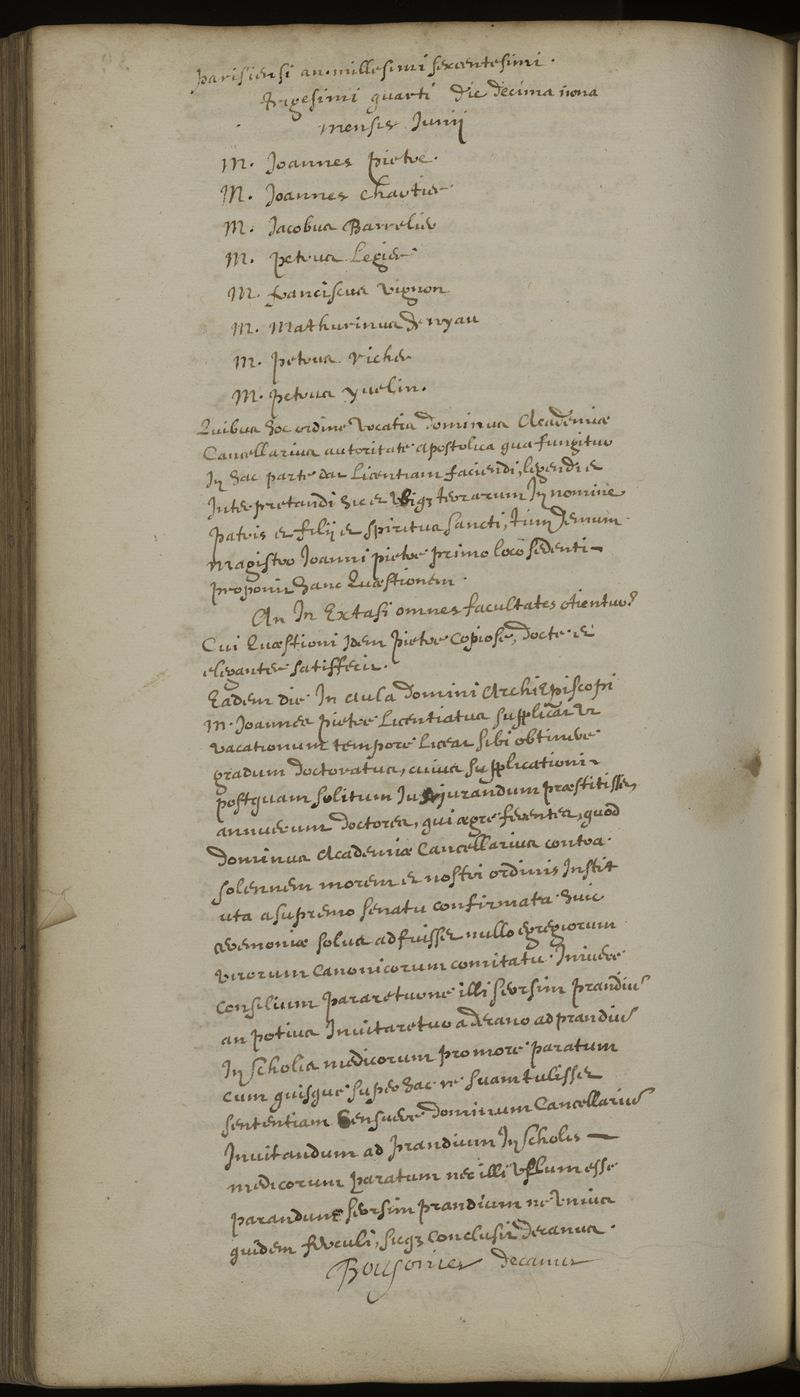 parisiensi an. millesimi sexcentesimi.
trigesimi quarti die decima nona
mensis Junij
M. Joannes pietre.
M. Joannes Chartier
M. Jacobus Barrelier
M. petrus Legier
M. franciscus vignon
M. Mathurinus Denyau
M. petrus richer
M. petrus yvelin.
Quibus hoc ordine vocatis dominus Academiæ
Cancellarius autoritate apostolica qua fungitur
In hac parte dat Licentiam faciendi, legendi et
Interpretandi hic et ubiq3 terrarum In nomine
patris et filij et spiritus sancti, tum demum
magistro Joanni pietre primo loco sedenti
proponit hanc Quæstionem.
An In Extasi omnes facultates otientur?
Cui Quæstioni Idem pietre copiose, docte et
eleganter satisfecit.
Eadem die In aula domini ArchiEpiscopi
M. Joannes pietre Licentiatus supplicavit ut
vacationum tempore liceat sibi obtinere
gradum doctoratus, cuius supplicationi
postquam solitum Jusjurandum præstitisset,
annuerunt doctores, qui ægre ferentes, quod
dominus Academiæ Cancellarius contra
solennem morem et nostri ordinis Instit
uta a supremo senatu confirmata huic
ceremoniæ solus adfuisset nullo egregiorum
virorum Canonicorum comitatu. Iniuere
consilium parareturne illi seorsim prandiu
an potius Invitaretur a decano ad prandiu
In scholis medicorum pro more paratum
cum quisque super hac re suam tulisset
sententiam Censuere dominum Cancellariu
Invitandum ad prandium In scholis
medicorum paratum nec illi ullum esse
parandum seorsim prandium ne unius
quidem ferculi, sicq3 conclusit decanus.
Bourgoinnier decanus